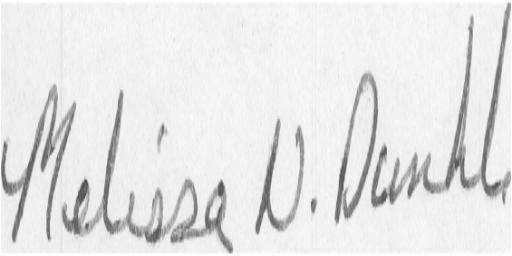 Melissa D. Dunkl